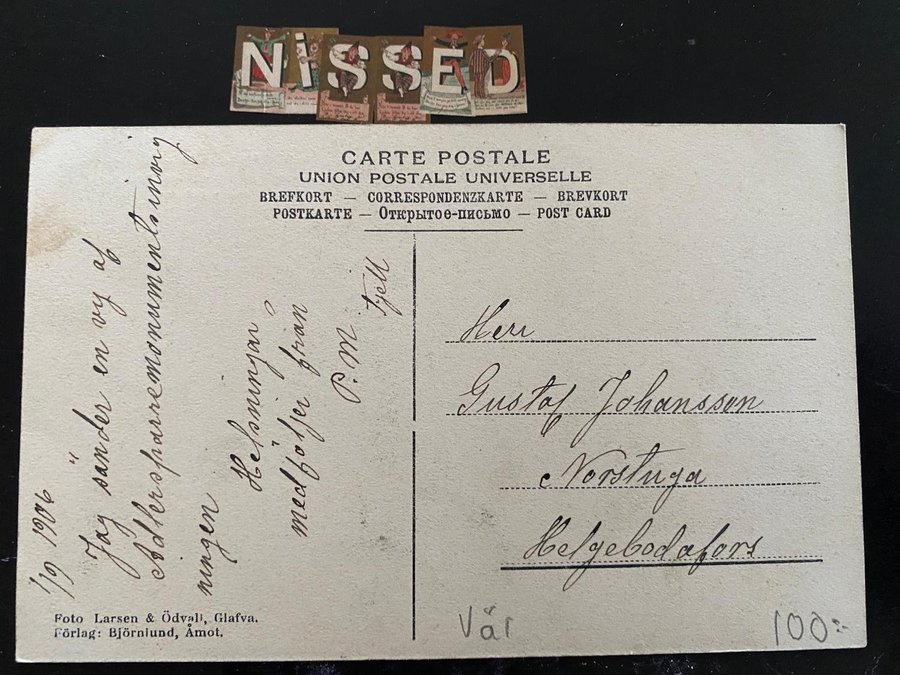 NiSSED
CARTE POSTALE
UNION POSTALE UNIVERSELLE
BREFKORT — CORRESPONDENZKARTE — BREVKORT
POSTKARTE — Открытое-письмо — POST CARD
1/9 1906
Jag sänder en vy af
Adlersparremonumentsinvig
ningen
Helsningar
medföljer från
P. M
Fjell
Herr
Gustaf Johansson
Norstuga
Helgebodafors
Foto Larsen & Ödvall, Glafva.
Förlag: Björnlund, Åmot.
Vär
100:-